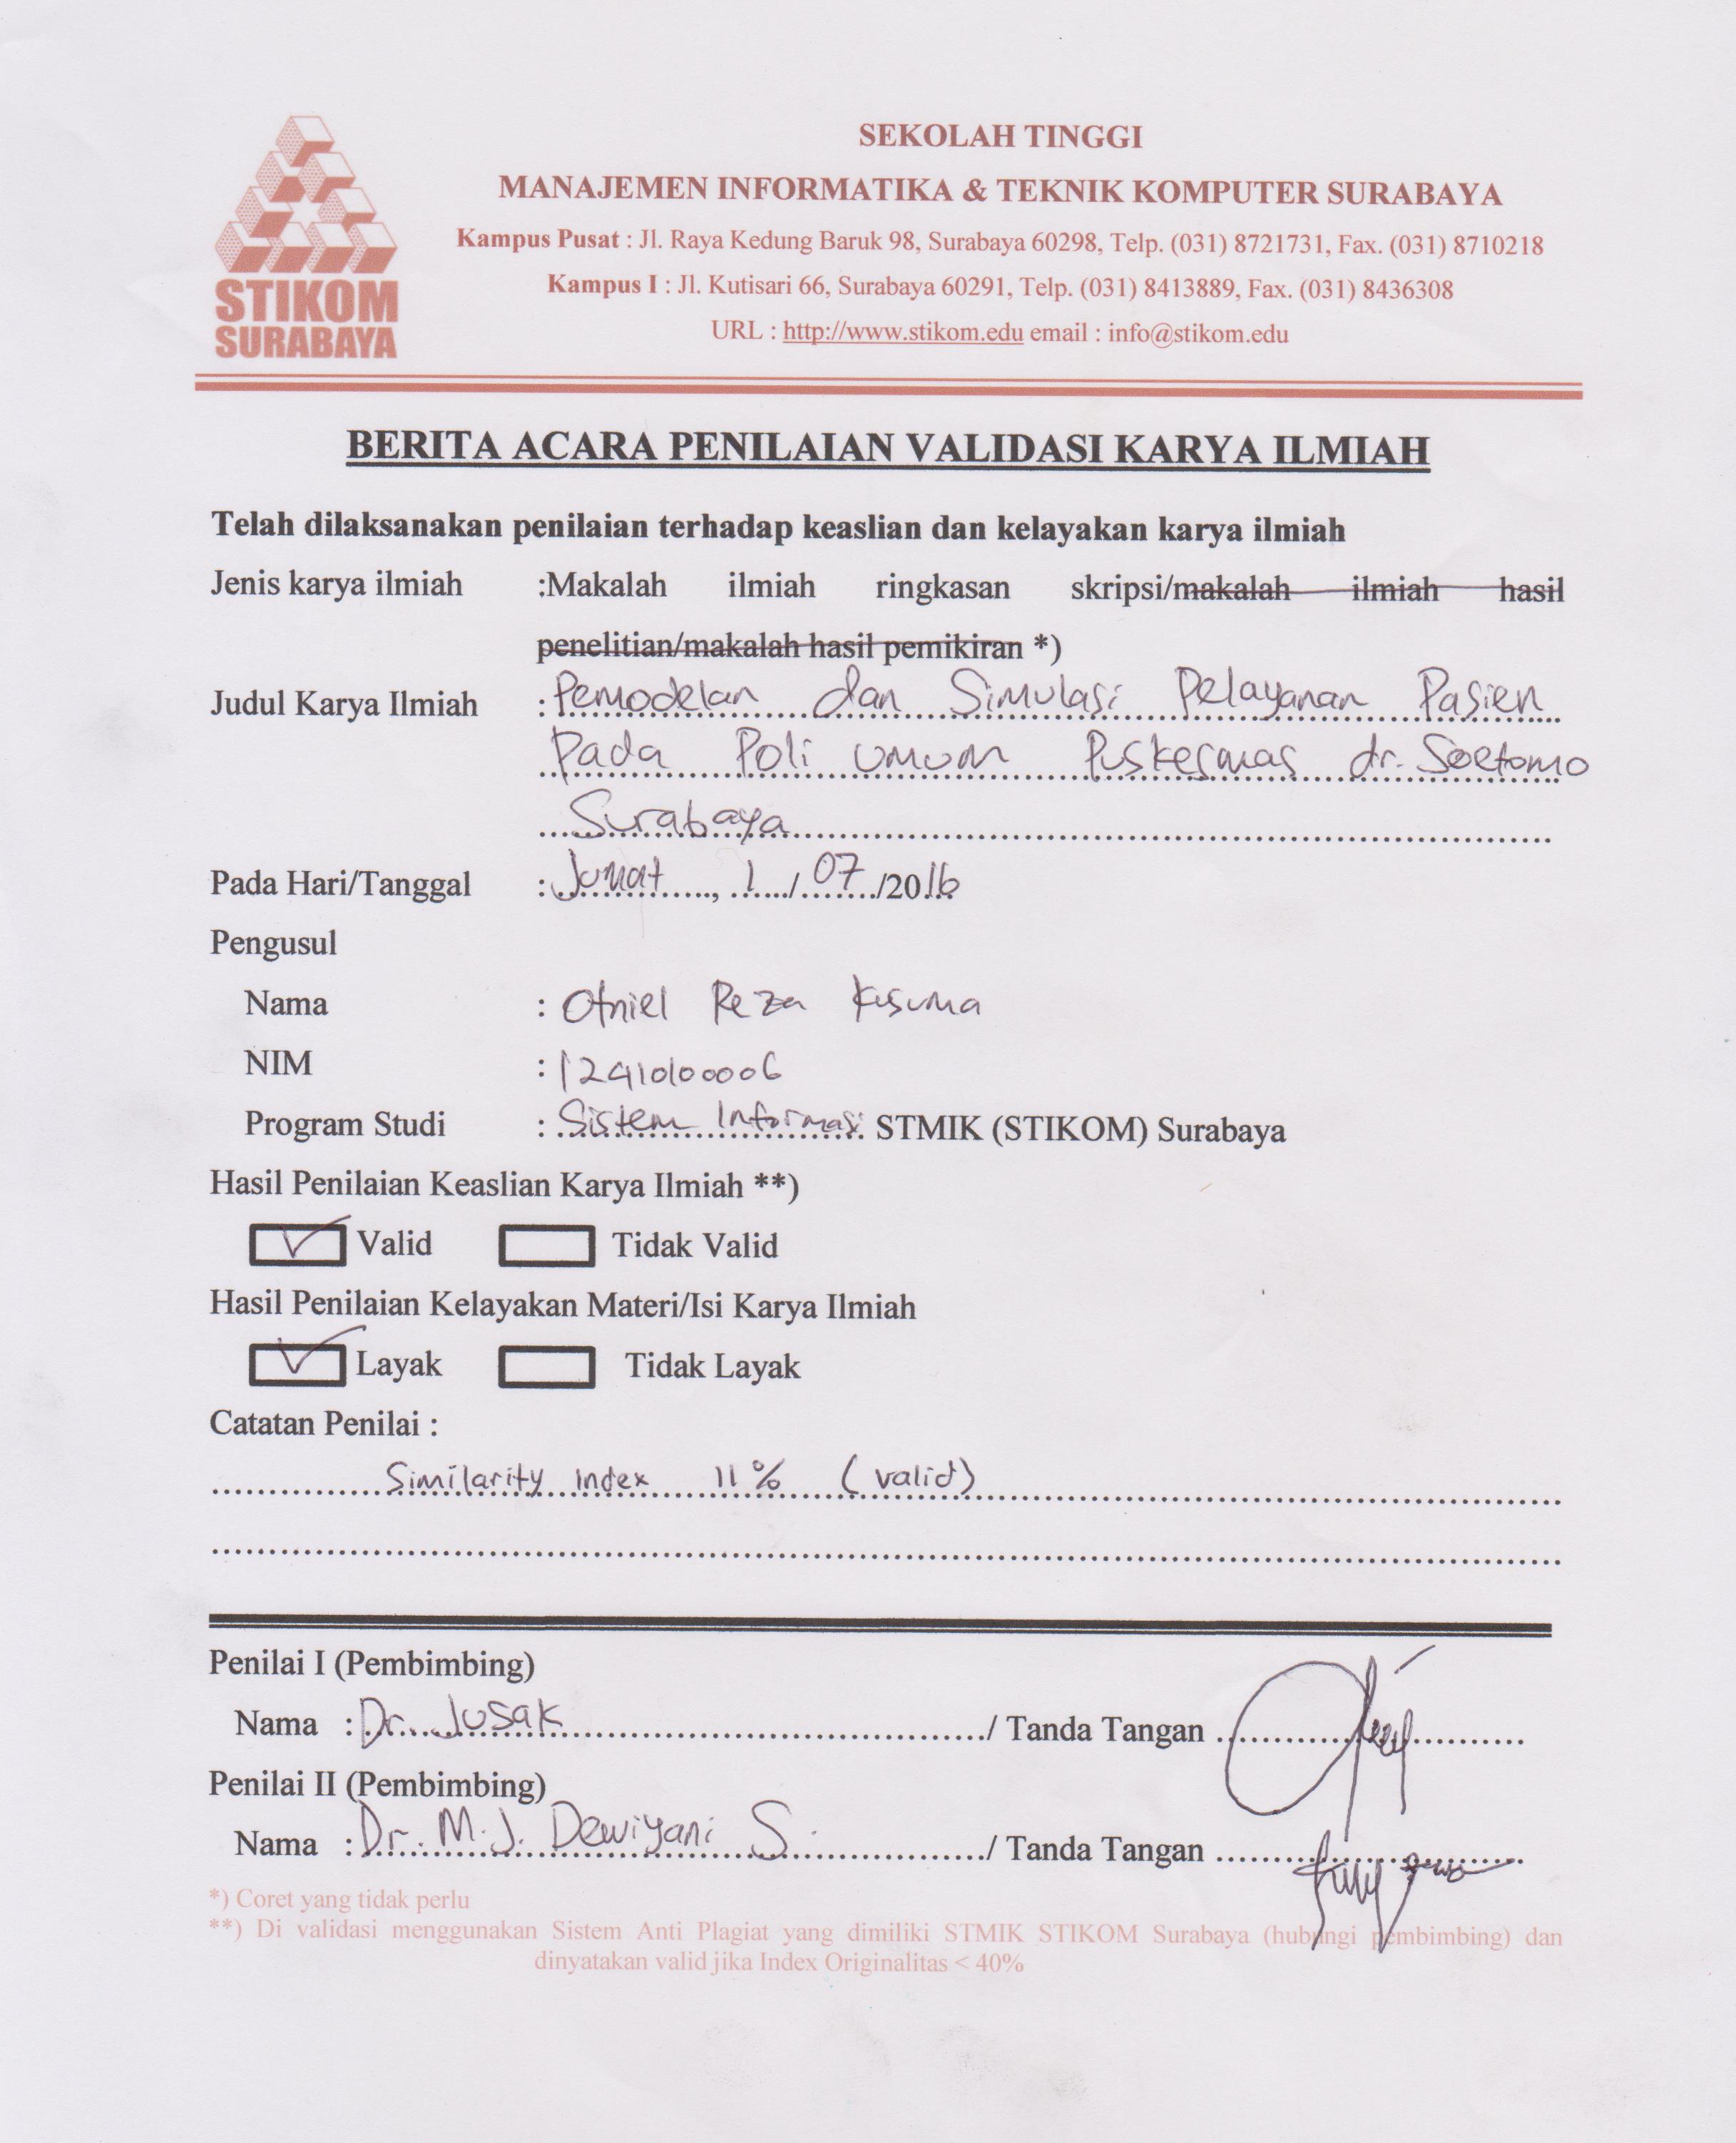 STIKOM
SURABAYA
SEKOLAH TINGGI
MANAJEMEN INFORMATIKA & TEKNIK KOMPUTER SURABAYA
Kampus Pusat : Jl. Raya Kedung Baruk 98, Surabaya 60298, Telp. (031) 8721731, Fax. (031) 8710218
Kampus I : Jl. Kutisari 66, Surabaya 60291, Telp. (031) 8413889, Fax. (031) 8436308
URL : http://www.stikom.edu email : info@stikom.edu
BERITA ACARA PENILAIAN VALIDASI KARYA ILMIAH
Telah dilaksanakan penilaian terhadap keaslian dan kelayakan karya ilmiah
Jenis karya ilmiah :Makalah ilmiah ringkasan skripsi/makalah ilmiah hasil
penelitian/makalah hasil pemikiran *)
Judul Karya Ilmiah : Pemodelan dan Simulasi Pelayanan Pasien
Pada Poli Umum Puskesmas dr. Soetomo
Surabaya
Pada Hari/Tanggal : Jumat, 1/07/2016
Pengusul
Nama : Otniel Reza Kusuma
NIM : 12410100006
Program Studi : Sistem Informasi STMIK (STIKOM) Surabaya
Hasil Penilaian Keaslian Karya Ilmiah **)
Valid Tidak Valid
Hasil Penilaian Kelayakan Materi/Isi Karya Ilmiah
Layak Tidak Layak
Catatan Penilai :
Similarity index 11% (valid)
Penilai I (Pembimbing)
Nama : Dr. Jusak / Tanda Tangan
Penilai II (Pembimbing)
Nama : Dr. M.J. Dewiyani S. / Tanda Tangan
*) Coret yang tidak perlu
**) Di validasi menggunakan Sistem Anti Plagiat yang dimiliki STMIK STIKOM Surabaya (hubungi pembimbing) dan
dinyatakan valid jika Index Originalitas < 40%